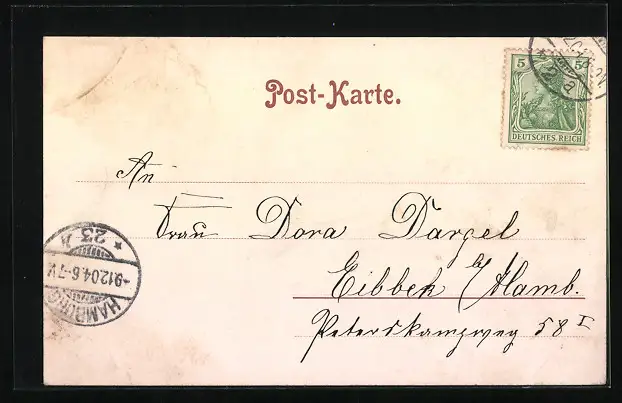 Post-Karte.
5 5
DEUTSCHES REICH
An
Frau Dora Dargel
Eilbek b/Hamb.
Peterskampweg 58 I
HAMBURG
-9.12.04.6-7V.
* 23 *